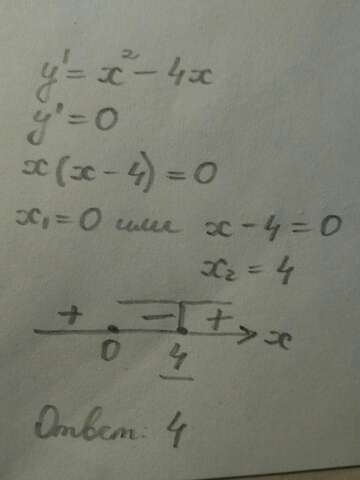 y' = x² - 4x
y' = 0
x(x - 4) = 0
x₁ = 0 или x - 4 = 0
x₂ = 4
+ - +
0 4 x
Ответ: 4